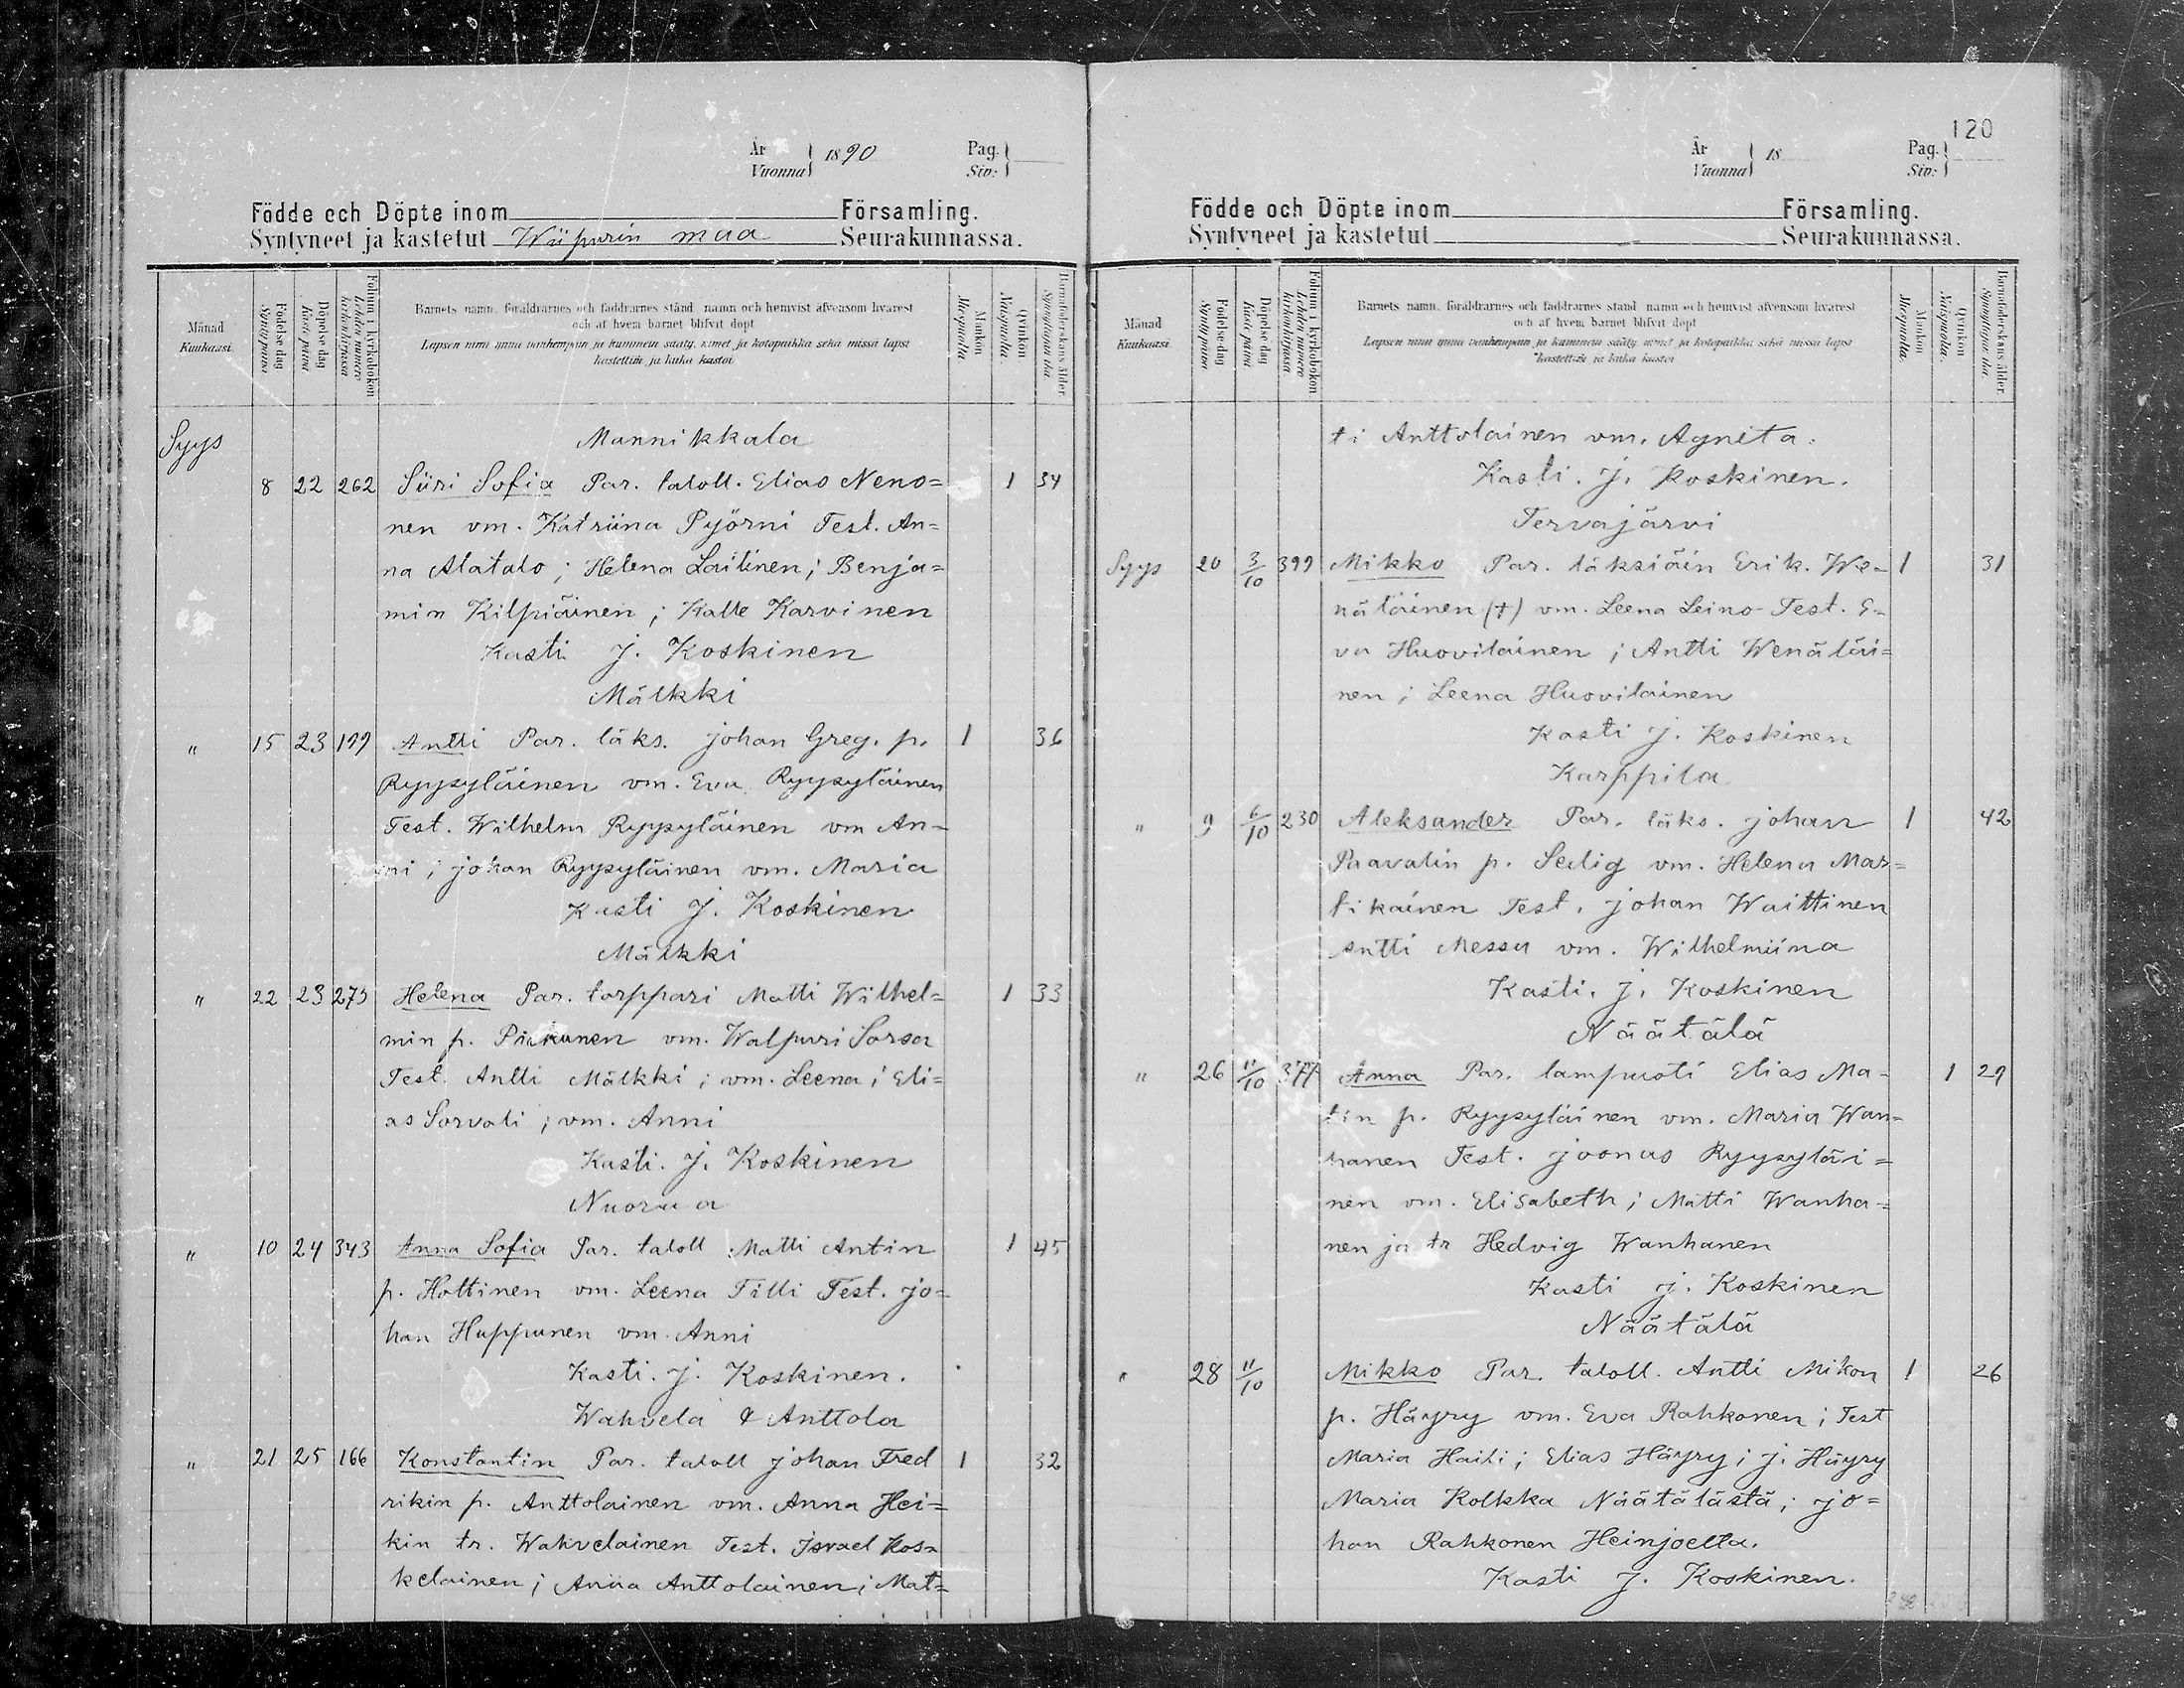 År
Vuonna 1890
Pag.
Siv:
Födde och Döpte inom Församling.
Syntyneet ja kastetut Wiipurin maa Seurakunnassa.
Månad
Kuukausi
Födelse dag
Syntö päivä
Döpelse dag
Kaste päivä
Folium i kyrkoboken
Lehden numero kirkonkirjassa
Barnets namn, föräldrarnes och faddrarnes stånd namn och hemvist äfvensom hvarest
och af hvem barnet blifvit döpt
Lapsen nimi ynnä vanhempain ja kummein sääty, nimet ja kotopaikka sekä missä lapsi
kastettiin ja kuka kastoi
Mankön
Miespuolia.
Qvinkön
Naispuolia.
Barnaföderskans ålder
Synnyttäjän ikä.
Syys
Mannikkala
8 22 262 Siiri Sofia Par. taloll. Elias Neno= 1 34
nen vm. Katriina Pyörni Test. An=
na Alatalo; Helena Laitinen; Benja=
min Kilpiäinen; Kalle Karvinen
Kasti J. Koskinen
Mälkki
" 15 23 199 Antti Par. läks. Johan Greg. p. 1 36
Ryysyläinen vm. Eva Ryysyläinen
Test. Wilhelm Ryysyläinen vm An=
ni; Johan Ryysyläinen vm. Maria
Kasti J. Koskinen
Mälkki
" 22 23 275 Helena Par. torppari Matti Wilhel= 1 33
min p. vm. Walpuri Sorsa
Test. Antti Mälkki; vm. Leena; Eli=
as Sorvali; vm. Anni
Kasti. J. Koskinen
Nuoraa
" 10 24 343 Anna Sofia Par. taloll Matti Antin 1 45
p. Hottinen vm. Leena Tilli Test. Jo=
han Huppunen vm. Anni
Kasti. J. Koskinen.
Wahvela & Anttola
" 21 25 166 Konstantin Par. taloll Johan Fred 1 32
rikin p. Anttolainen vm. Anna Hei=
kin tr. Wahvelainen Test. Israel Kos=
kelainen; Anna Anttolainen; Mat=
120
År
Vuonna 18
Pag.
Siv:
Födde och Döpte inom Församling.
Syntyneet ja kastetut Seurakunnassa.
Månad
Kuukausi
Födelse dag
Syntö päivä
Döpelse dag
Kaste päivä
Folium i kyrkoboken
Lehden numero kirkonkirjassa
Barnets namn, föräldrarnes och faddrarnes stånd namn och hemvist äfvensom hvarest
och af hvem barnet blifvit döpt
Lapsen nimi ynnä vanhempain ja kummein sääty, nimet ja kotopaikka sekä missä lapsi
kastettiin ja kuka kastoi
Mankön
Miespuolia.
Qvinkön
Naispuolia.
Barnaföderskans ålder
Synnyttäjän ikä.
ti Anttolainen vm. Agneta.
Kasti. J. Koskinen.
Tervajärvi
Syys 20 3/10 399 Mikko Par. läksiäin Erik. We= 1 31
näläinen (†) vm. Leena Leino Test. E=
va Huovilainen; Antti Wenäläi=
nen; Leena Huovilainen
Kasti J. Koskinen
Karppila
" 9 6/10 230 Aleksander Par. läks. Johan 1 42
Paavalin p. Selig vm. Helena Mar=
tikainen Test. Johan Waittinen
Antti Messu vm. Wilhelmiina
Kasti. J. Koskinen
Näätälä
" 26 11/10 377 Anna Par. lampuoti Elias Ma= 1 29
tin p. Ryysyläinen vm. Maria Wan=
hanen Test. Joonas Ryysyläi=
nen vm. Elisabeth; Matti Wanha=
nen ja tr Hedvig Wanhanen
Kasti J. Koskinen
Näätälä
" 28 11/10 Mikko Par. taloll. Antti Mikon 1 26
p. Häyry vm. Eva Rahkonen; Test
Maria Haili; Elias Häyry; J. Häyry
Maria Kolkka Näätälästä; Jo=
han Rahkonen Heinjoella.
Kasti J. Koskinen.